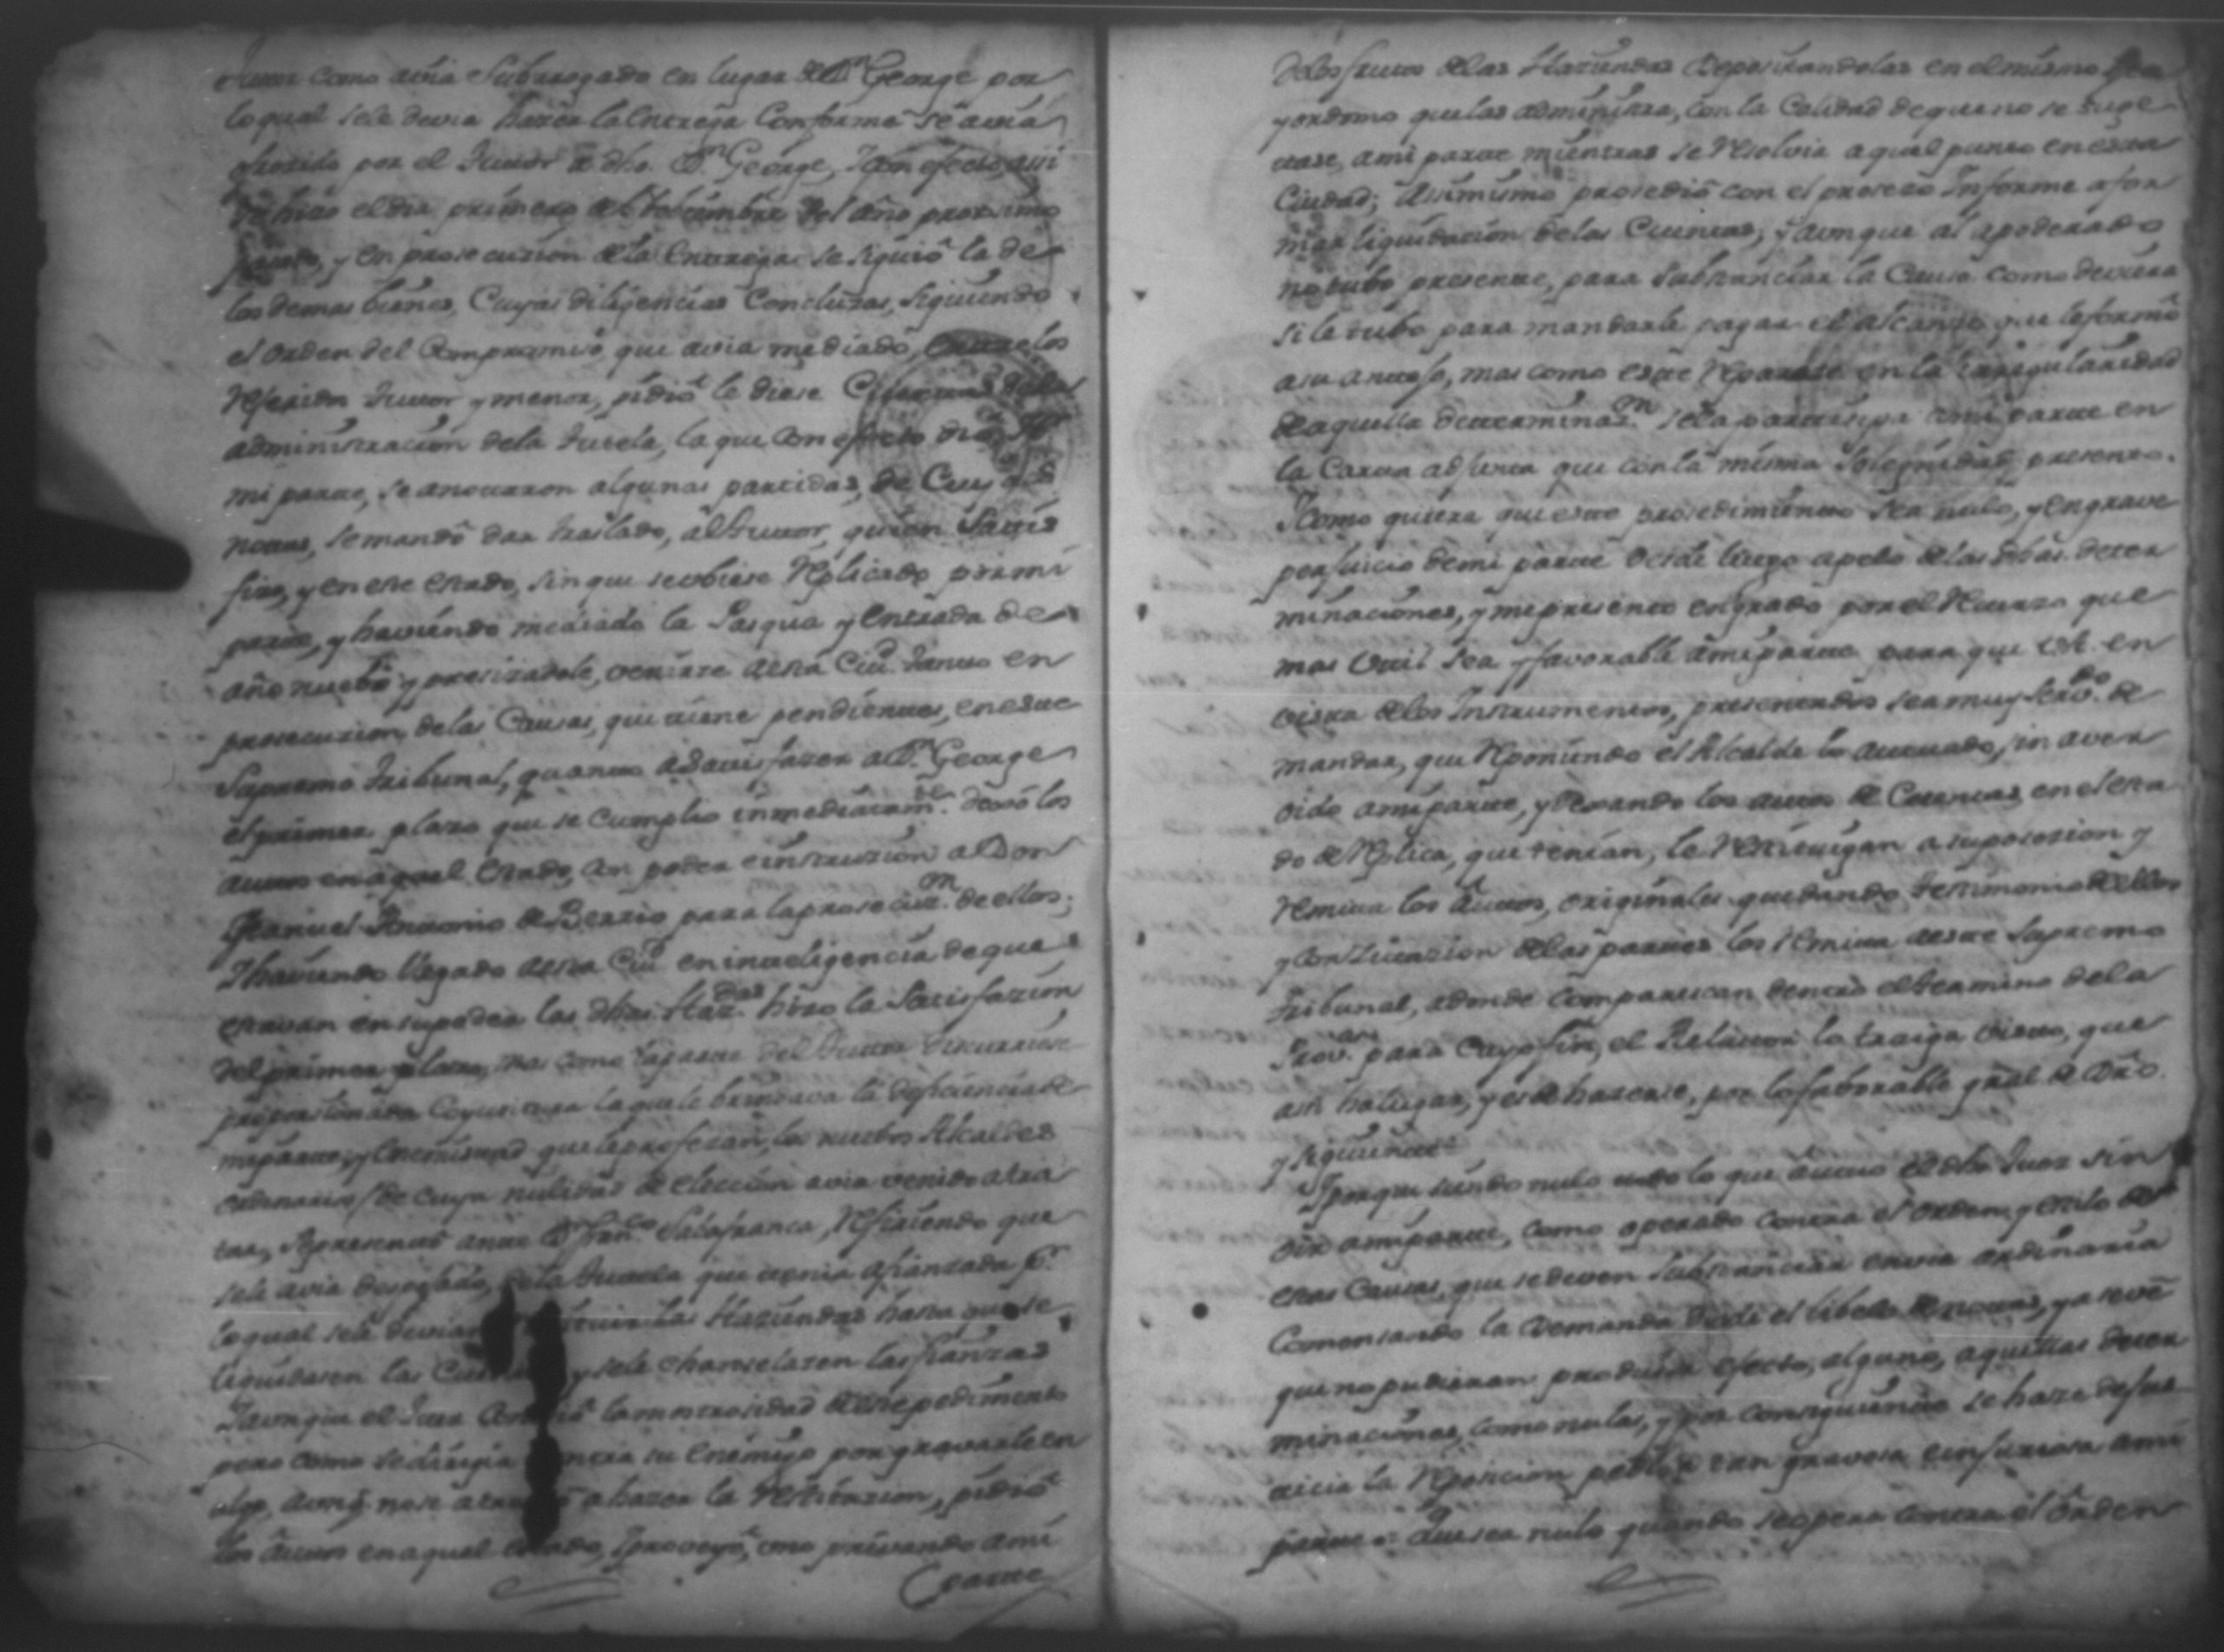 como avia subrrogado en lugar de Dn George por
lo qual sele devia hazer la entrega Conforme se avia
ofrecido por el Tuttor a dho. Dn George, I con efecto, assi
se hizo el dia primero del Diciembre del año proximo
passado, y en prosecuzion de la entrega se siguió la de
los demas bienes, Cuyas diligencias Concluzas, siguiendo
el orden del Compromiso que avia mediado, entre los
Referidos Tuttor y menor, pidió le diese Cuentas de la
administracion dela Tutela, la que con efecto dió,
mi partte, se anottaron algunas partidas, de Cuyas
nottas, se mandó dar traslado, al Tuttor, quien sattis
fizo, y en este estado, sin que se ubiese Replicado por mi
partte, y haviendo mediado la Pasqua y Entrada de
año nuebo y presizadole, venirse a esta Ciud. tanto en
prosecuzion de las Causas, que tiene pendientes, en este
Supremo Tribunal, quanto a sattisfazer a Dn. George
el primer plazo que se cumplio inmediatamte. dexó los
auttos en aquel estado, con poder e instruzion a Don
Manuel Antonio de Berrio para la prosecuzn. de ellos;
I haviendo llegado a esta Ciud en inteligencia de que
estavan en su poder las dhas Hazdas. hizo la Satisfazion
del primer plazo, mas como la partte del Tuttor discurriese
proporcionada Coyuntura la que le brindava la deficiencia de
mi partte, y enemistad que le profesan, los nuebos Alcaldes
ordinarios / de cuya nulidad de eleccion avia venido a tra
tar, Representó ante Dn Franco Salafranca, Refiriendo que
sele avia despojado, de la Tutela que tenia afianzada pr.
lo qual sele devian las Haziendas hasta que se
liquidasen las y sele chanselasen las fianzas
I aunque el Juez la monstrosidad de este pedimento
pero como se dirigia contra su Enemigo por gravarle en
algo, aunq. no se a hazer la Restituzion, pidió
los auttos en aquel estado, I proveyó, uno privando a mi
partte
de los frutos de las Haziendas depositandolas en el mismo Ma
yordomo que las administra, con la Calidad de que no se
a mi partte mientras se Resolvia aquel punto en esta
Ciudad; Asimismo prosedió con el proseso Informe a for
mar liquidacion de las Cuentas, y aunque al apoderado
no tubo presente, para substanciar la Causa como deviera
si le tubo para mandarle pagar el alcanze que le formó
a su antojo, mas como este Reparase en la irregularidad
de aquella determinazn. se la partisipa a mi partte en
la Carta adjunta que con la misma solegnidad presento.
I como quiera que este prosedimiento sea nulo, y en grave
perjuicio de mi partte desde luego apelo de las dhas. deter
minaciones, y me presento en grado por el Recurso que
mas util sea y favorable a mi partte para que VA. en
vista de los Instrumentos, presentados sea muy servdo. de
mandar, que Reponiendo el Alcalde lo actuado, sin aver
oido a mi partte, y dexando los auttos de Cuentas en el esta
do de Replica, que tenian, le Restituigan a su posesion y
Remita los auttos, originales quedando testimonio de ellos
y con zitazion de las parttes los Remita a este Supremo
Tribunal, adonde comparescan dentro el termino de la
para Cuyo fin, el Relattor lo traiga visto, que
asi ha lugar, y es de hazerse, por lo faborable gral de Dro.
y siguiente
I porque siendo nulo todo lo que actuó el dho Juez sin
oir a mi partte, como operado contra el orden y estilo de
estas Causas, que se deven substanciar en via ordinaria
Comensando la demanda desde el libelo de nottas, ya se vé
que no pudieran producir efecto, alguno, aquellas deter
minaciones, como nulas, y por consiguiente se haze de jus
ticia la Reposicion pedida tan gravosa e injuriosa a mi
partte = Que sea nulo quando se opera contra el orden